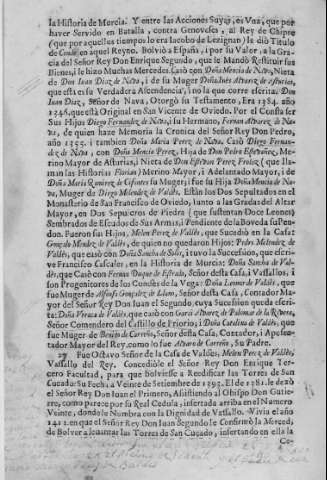 la Historia de Murcia. Y entre las Acciones Suyas, es Vna, que por
haver Servido en Batalla, contra Genoveses, al Rey de Chipre
(que por aquellos tiempos lo era Iacobo de Lezignan) le diò Titulo
de Conde, en aquel Reyno. Bolviò a España, i por su Valor, a la Gracia
del Señor Rey Don Enrique Segundo, que le Mandò Restituir sus
Bienes, i le hizo Muchas Mercedes. Casò con Doña Mencia de Nava, Nieta
de Don Iuan Diaz de Nava, i de su Muger Doña Inès Alvarez de Asturias,
que esta es su Verdadera Ascendencia, i no la que corre escrita. Don
Iuan Diaz, Señor de Nava, Otorgò su Testamento, Era 1384. año
1346. que està Original en San Vicente de Oviedo. Por èl Consta ser
Sus Hijos Diego Fernandez de Nava, i su Hermano, Fernan Alvarez de Nava,
de quien haze Memoria la Cronica del Señor Rey Don Pedro,
año 1355. i tambien Doña Maria Perez de Nava. Casò Diego Fernandez
de Nava, con Doña Mencia Perez, Hija de Don Pedro Estevañez, Merino
Mayor de Asturias, i Nieta de Don Estevan Perez Froiaz (que llaman
las Historias Florian) Merino Mayor, i Adelantado Mayor, i de
Doña Maria Ramirez de Cifontes su Muger; i fue su Hija Doña Mencia de Nava,
Muger de Diego Melendez de Valdès. Estàn los Dos Sepultados en el
Monasterio de San Francisco de Oviedo, Iunto a las Gradas del Altar
Mayor, en Dos Sepulcros de Piedra (que sustentan Doce Leones)
Sembrados de Escudos de Sus Armas, i Pendiente de la Boveda su Pendon.
Fueron sus Hijos, Melen Perez de Valdès, que Sucediò en la Casa:
Gonçalo Mendez de Valdès, de quien no quedaron Hijos: Pedro Melendez de
Valdès, que casò con Doña Sancha de Soto, i tuvo la Sucession, que escrive
Francisco Cascales, en la Historia de Murcia: Doña Sancha de Valdès,
que Casò con Fernan Duque de Estrada, Señor desta Casa, i Vassallos, i
son Progenitores de los Condes de la Vega: Doña Leonor de Valdès, que
fue Muger de Alfonso Gonçalez de Leon, Señor desta Casa, Contador Mayor
del Señor Rey Don Iuan el Segundo, cuya Sucession queda escrita:
Doña Vrraca de Valdès, que casò con Garci Alvarez de Palomar de la Rivera,
Señor Comendero del Castillo de Priorio; i Doña Catalina de Valdès, que
fue Muger de de Carreño, Señor desta Casa, Contador, i Aposentador
Mayor del Rey, como lo fue Alvaro de Carreño, Su Padre.
27 Fue Octavo Señor de la Casa de Valdès, Melen Perez de Valdès,
Vassallo del Rey. Concediòle el Señor Rey Don Enrique Tercero
Facultad, para que bolviesse a Reedificar las Torres de San
Cucado: Su Fecha, a Veinte de Setiembre de 1393. El de 1381. le dezò
el Señor Rey Don Iuan el Primero, Assistiendo al Obispo Don Gutierre,
como parece por su Real Cedula, insertada arriba en el Numero
Veinte, donde le Nombra con la Dignidad de Vassallo. Vivia el año
1412. en que el Señor Rey Don Iuan Segundo le Confirmò la Merced,
de Bolver a levantar las Torres de San Cucado, insertando en ella la
Co-